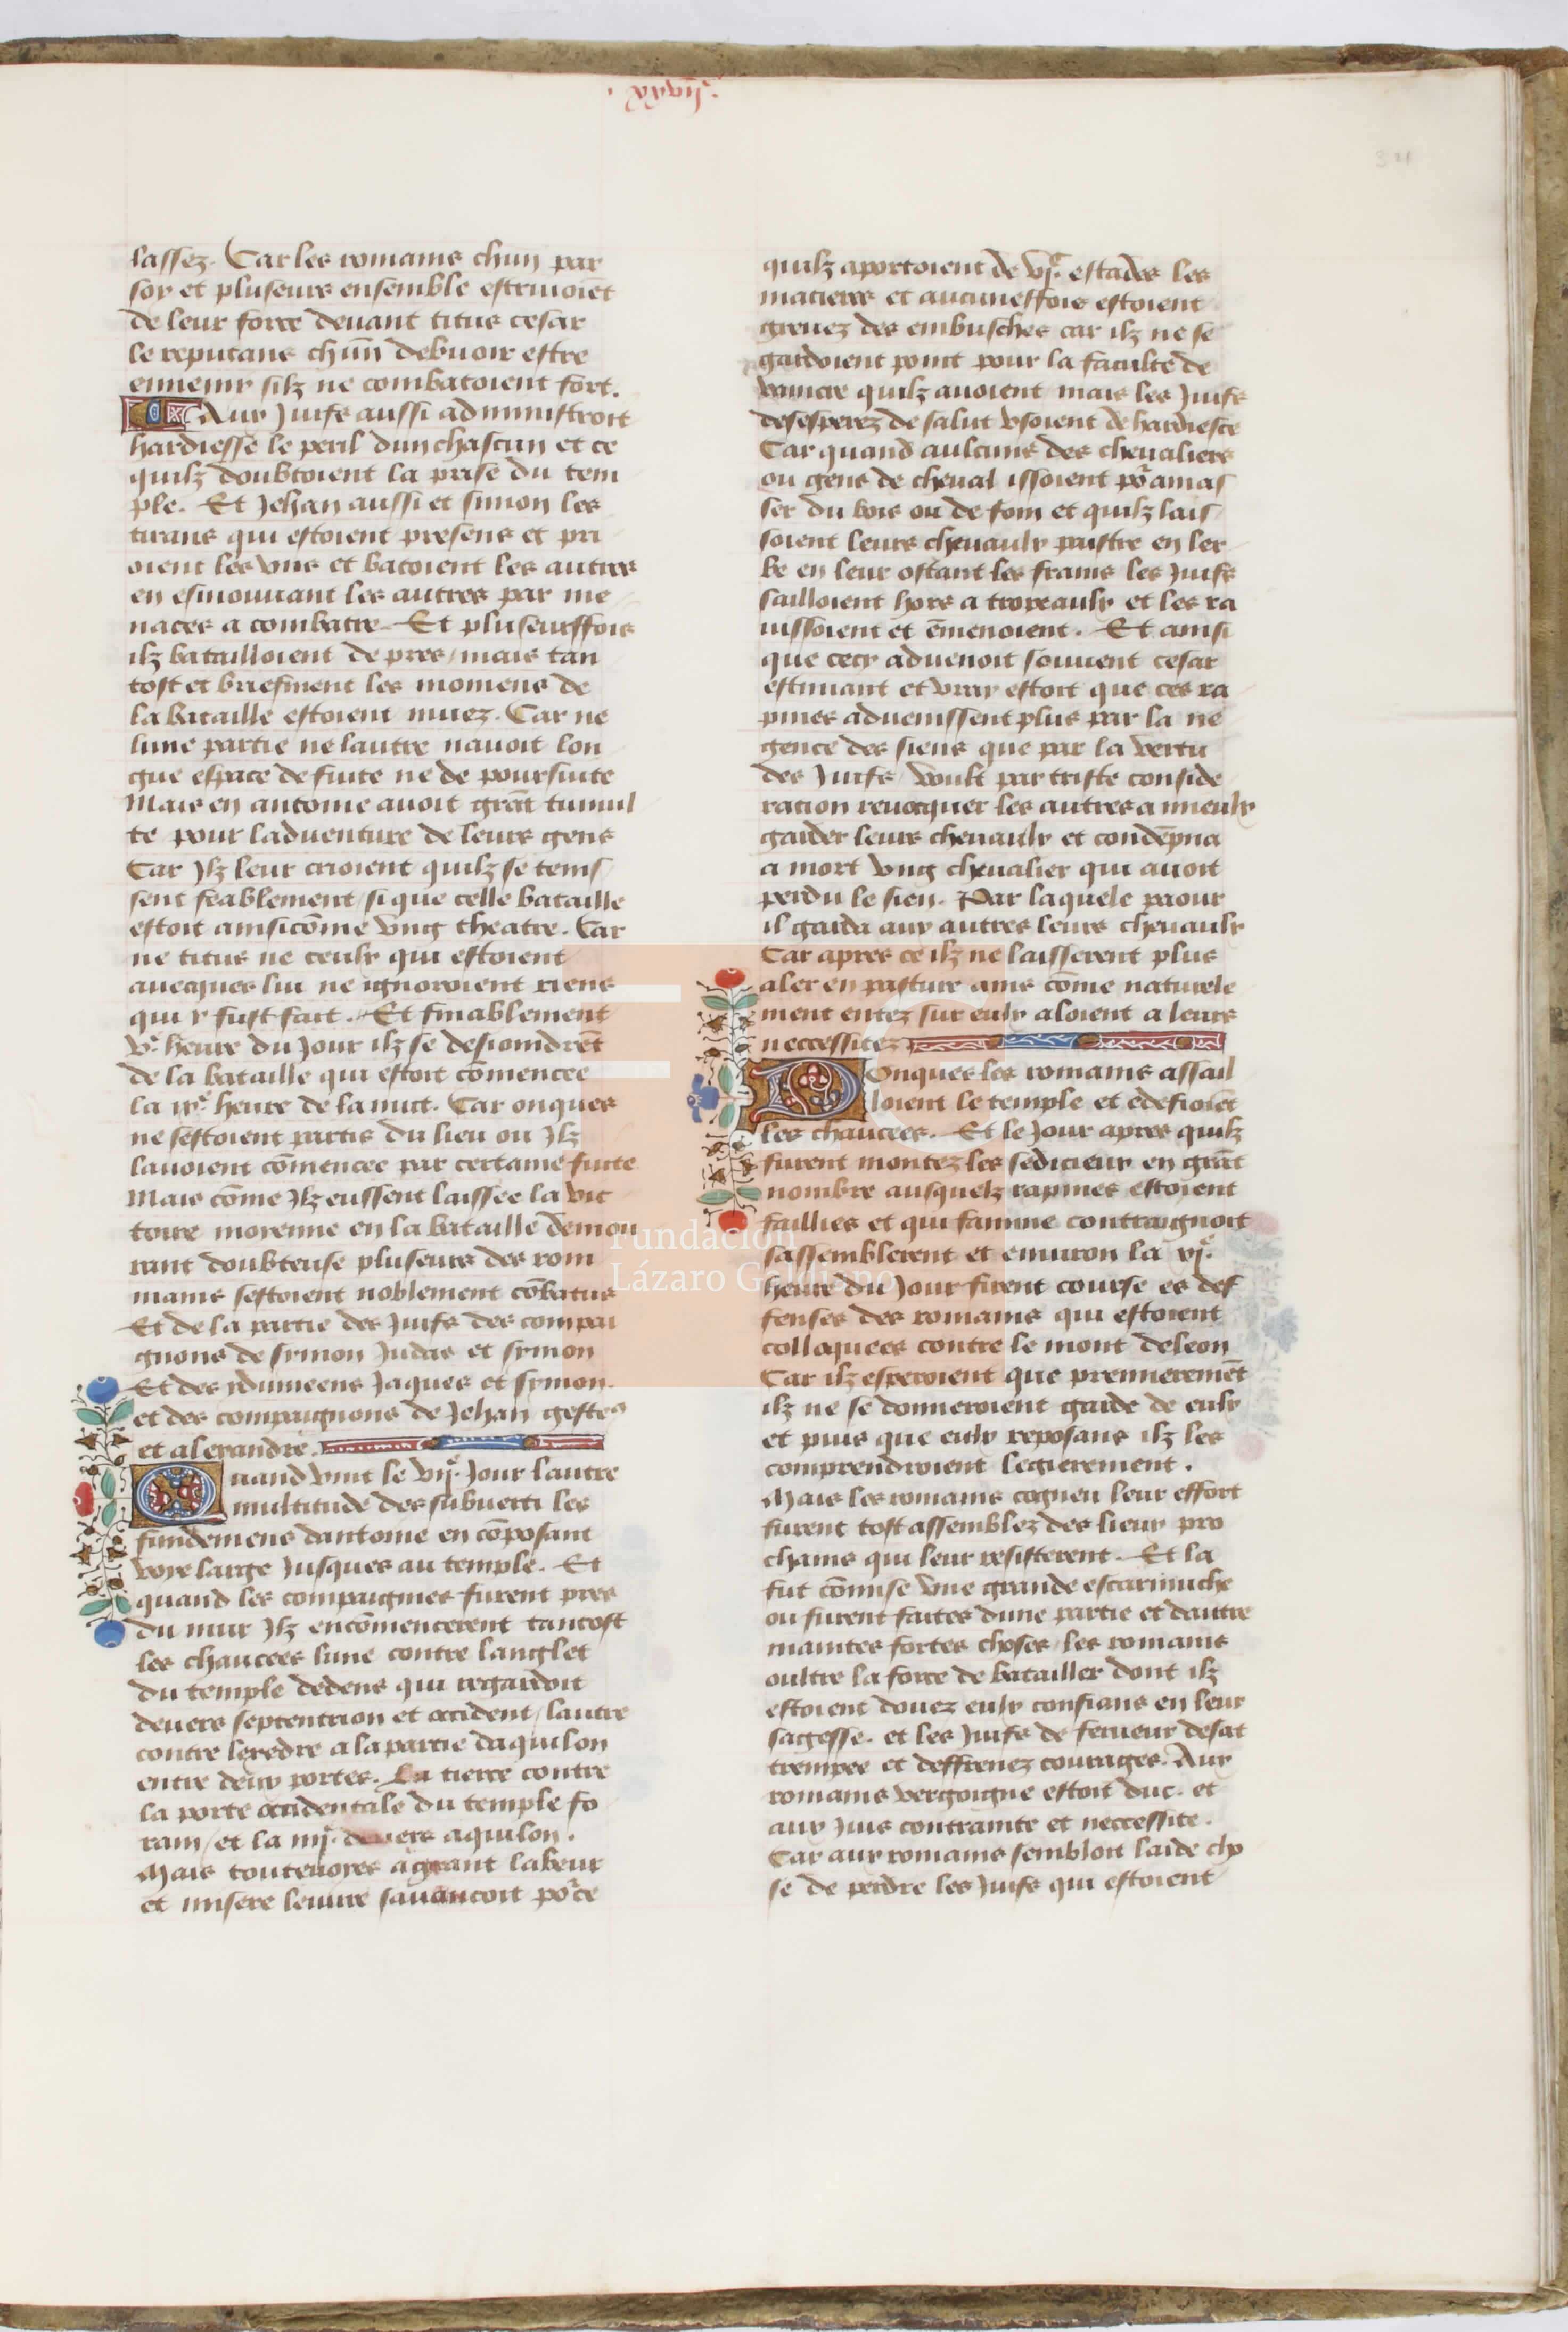 34
lassez. Car les romains chūn par
soy et pluseurs ensemble estriuoiēt
de leur force deuant titus cesar
le reputans chūn debuoir estre
ennemy silz ne combatoient fort.
Aux Juifs aussi administroit
hardiesse le peril dun chascun et ce
quilz doubtoient la prise du tem
ple. Et Jehan aussi et simon les
tirans qui estoient presens et pri
oient les vns et batoient les autres
en esmouuant les autres par me
naces a combatre. Et pluseurssfois
ilz batailloient de pres / mais tan
tost et briefment les momens de
la bataille estoient muez. Car ne
lune partie ne lautre nauoit lon
gue espace de fuite ne de poursuite
Mais en antoine auoit grāt tumul
te pour laduenture de leurs gens
Car Jlz leur crioient quilz se tenis
sent feablement / si que celle bataille
estoit ainsi cōme vng theatre. Car
ne titus ne ceulx qui estoient
auecques lui ne ignoroient riens
qui y fust fait. Et finablement
vᵉ. heure du Jour ilz se desioindrēt
de la bataille qui estoit cōmencee
la ixᵉ. heure de la nuit. Car onques
ne sestoient partis du lieu ou Jlz
lauoient cōmencee par certaine fuite
Mais cōme Jlz eussent laissee la vic
toire moyenne en la bataille demou
rant doubteuse pluseurs des rom
mains sestoient noblement cōbatus
Et de la partie des Juifs des compai
gnons de symon Judas et symon
Et des ydumeens Jaques et symon.
et des compaignons de Jehan gestes
et alexandre.
Quand vint le vijᵉ. Jour lautre
multitude des subuerti les
fundemens dantoine en cōposant
voye large Jusques au temple. Et
quand les compaignies furent pres
du mur Jlz encōmencerent tantost
les chaucees lune contre langlet
du temple dedens qui regardoit
deuers septentrion et occident / lautre
contre lexedre a la partie daquilon
entre deux portes. La tierce contre
la porte occidentale du temple fo
rain / et la iiijᵉ. deuers aquilon.
Mais touteuoyes a grant labeur
et misere leuure sauancoit poʳ ce
quilz aportoient de vjᵉ. estades les
matieres et aucuneffois estoient
greuez des embusches car ilz ne se
gardoient point pour la faculte de
vaincre quilz auoient mais les Juifs
desesperez de salut vsoient de hardiesce
Car quand aulcuns des cheualiers
ou gens de cheual issoient poʳ amas
ser du bois ou de foin et quilz lais
soient leurs cheuaulx paistre en ler
be en leur ostant les frains les Juifs
sailloient hors a tropeaulx et les ra
uissoient et ēmenoient. Et ainsi
que cecy aduenoit souuent cesar
estimant et vray estoit que ces ra
pines aduenissent plus par la ne
gence des siens que par la vertu
des Juifs / voult par triste conside
racion reuocquer les autres a mieulx
garder leurs cheuaulx et condēpna
a mort vng cheualier qui auoit
perdu le sien. Par laquele paour
il garda aux autres leurs cheuaulx
Car apres ce ilz ne laisserent plus
aler en pasture ains cōme naturele
ment entez sur eulx aloient a leurs
neccessitez
Donques les romains assail
loient le temple et edefioiēt
les chaucees. Et le Jour apres quilz
furent montez les sedicieux en grāt
nombre ausquelz rapines estoient
faillies et qui famine contraignoit
sassemblerent et enuiron la xjᵉ.
heure du Jour firent course es def
fenses des romains qui estoient
colloquees contre le mont deleon
Car ilz esperoient que premierement
ilz ne se donneroient garde de eulx
et puis que eulx reposans ilz les
comprendroient legierement.
Mais les romains cogneu leur effort
furent tost assemblez des lieux pro
chains qui leur resisterent. Et la
fut cōmise vne grande escarmuche
ou furent faites dune partie et dautre
maintes fortes choses / les romains
oultre la force de batailler dont ilz
estoient douez eulx confians en leur
sagesse. et les Juifs de ferueur desat
trempee et deffrenez courages. Aux
romains vergoigne estoit duc. et
aux Juis contrainte et neccessite.
Car aux romains sembloit laide cho
se de perdre les Juifs qui estoient
Fundación
Lázaro Galdiano